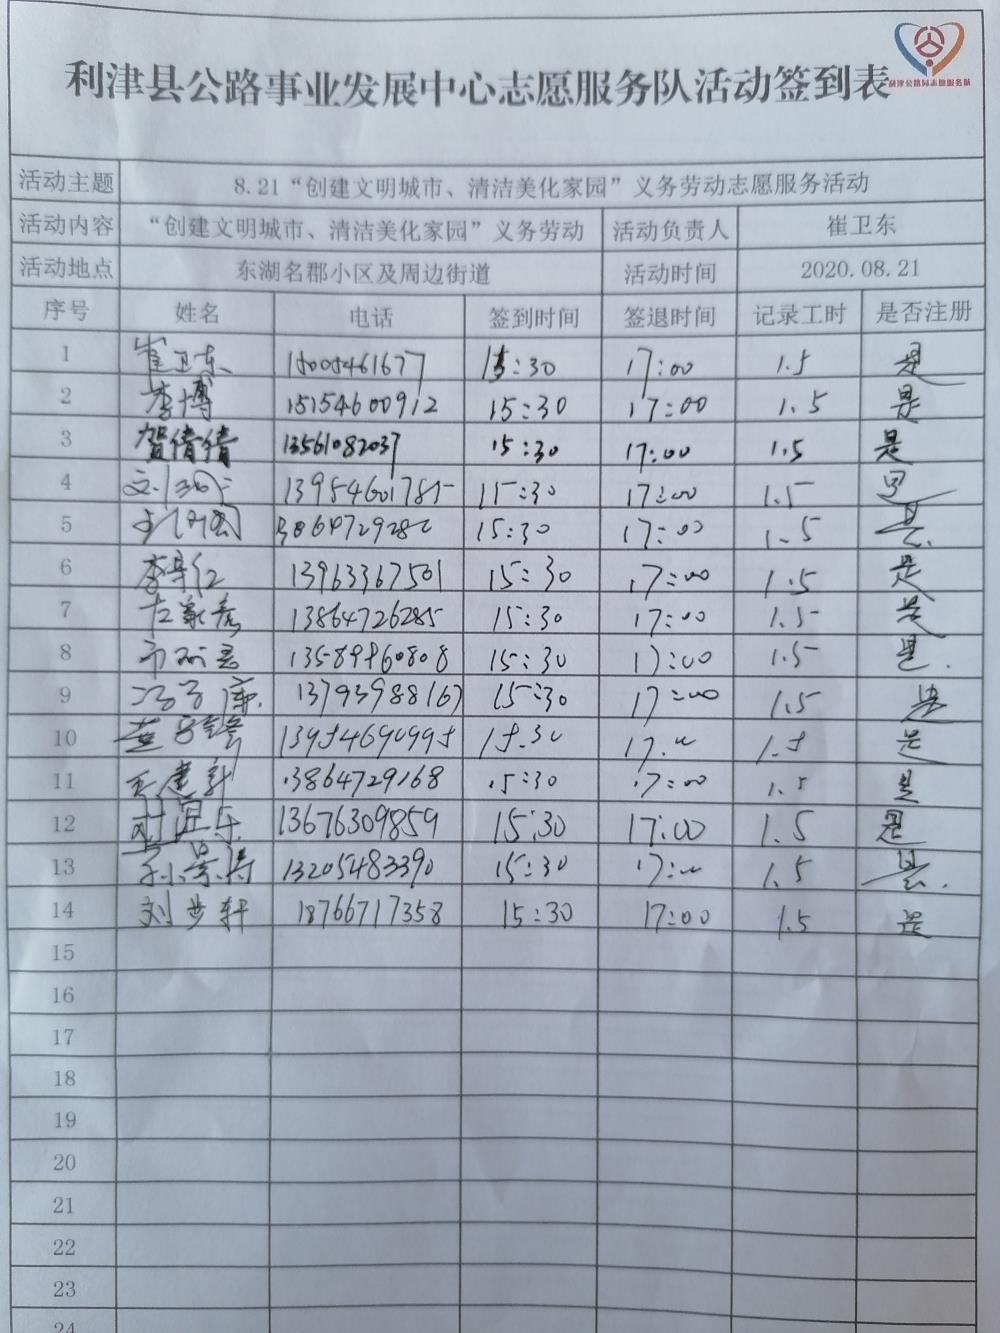 利津县公路事业发展中心志愿服务队活动签到表
利津公路局志愿服务队
活动主题 8.21“创建文明城市、清洁美化家园”义务劳动志愿服务活动
活动内容 “创建文明城市、清洁美化家园”义务劳动 活动负责人 崔卫东
活动地点 东湖名郡小区及周边街道 活动时间 2020.08.21
序号 姓名 电话 签到时间 签退时间 记录工时 是否注册
1 崔卫东 15005461677 15:30 17:00 1.5 是
2 李博 15154600912 15:30 17:00 1.5 是
3 贺倩倩 13561082037 15:30 17:00 1.5 是
4 13954601785 15:30 17:00 1.5 是
5 15:30 17:00 1.5 是
6 13963367501 15:30 17:00 1.5 是
7 13864726285 15:30 17:00 1.5 是
8 13589960808 15:30 17:00 1.5 是.
9 13793988167 15:30 17:00 1.5 是
10 13954690995 15.30 17.00 1.5 是
11 王建新 13864729168 15:30 17:00 1.5 是
12 13676309859 15:30 17:00 1.5 是
13 孙景涛 13205483390 15:30 17:00 1.5 是.
14 刘步轩 18766717358 15:30 17:00 1.5 是
15
16
17
18
19
20
21
22
23
24